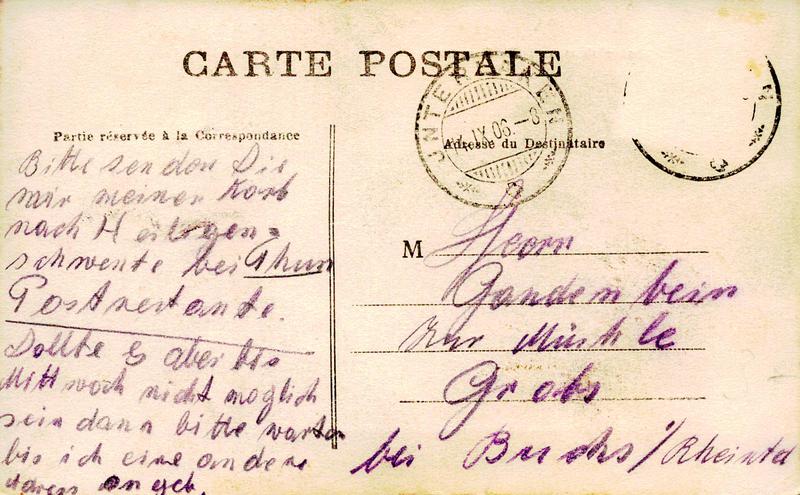 CARTE POSTALE
Partie réservée à la Correspondance
Adresse du Destinataire
INTERLAKEN
IX 06.-8
Bitte senden Sie
mir meinen Korb
nach Heiligen=
schwente bei Thun
Postrestante.
Sollte es aber bis
Mittwoch nicht moglich
sein dann bitte warten
bis ich eine andere
angeb.
M Herrn
Gandenbein
Zur Mühle
Grabs
bei Buchs / Rheintal